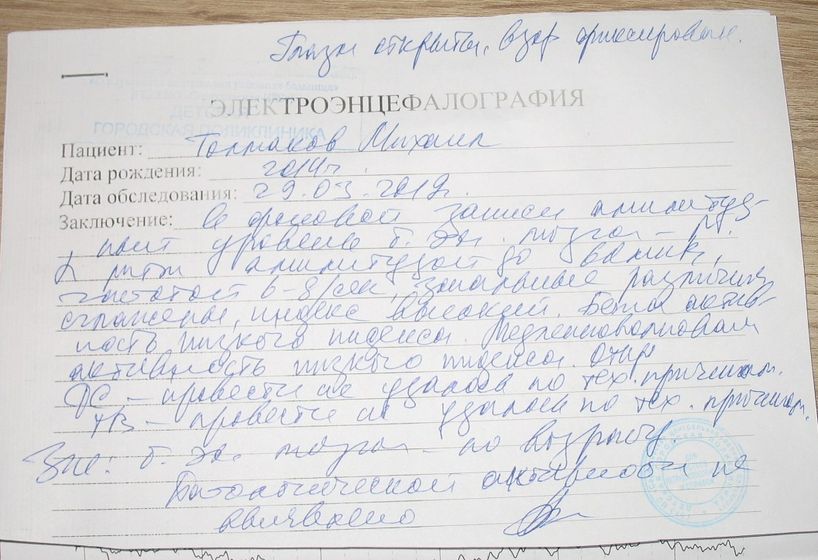 Глаза открыты, взор фиксирован.
ДЕТСКАЯ
ГОРОДСКАЯ ПОЛИКЛИНИКА
ЭЛЕКТРОЭНЦЕФАЛОГРАФИЯ
Пациент: Толмаков Михаил
Дата рождения: 2014г.
Дата обследования: 29.03.2019г.
Заключение: В фоновой записи амплитуд-
ный уровень б. эл. мозга –
α ритм амплитудой до 60 мкв,
частотой 6-8/сек, зональные различия
сглажены, индекс высокий. Бета актив-
ность низкого индекса. Медленноволновая
активность низкого индекса.
ФС – провести не удалось по тех. причинам.
ГВ – провести не удалось по тех. причинам.
Закл: б. эл. мозга – по возрасту.
Патологической активности не
выявлено